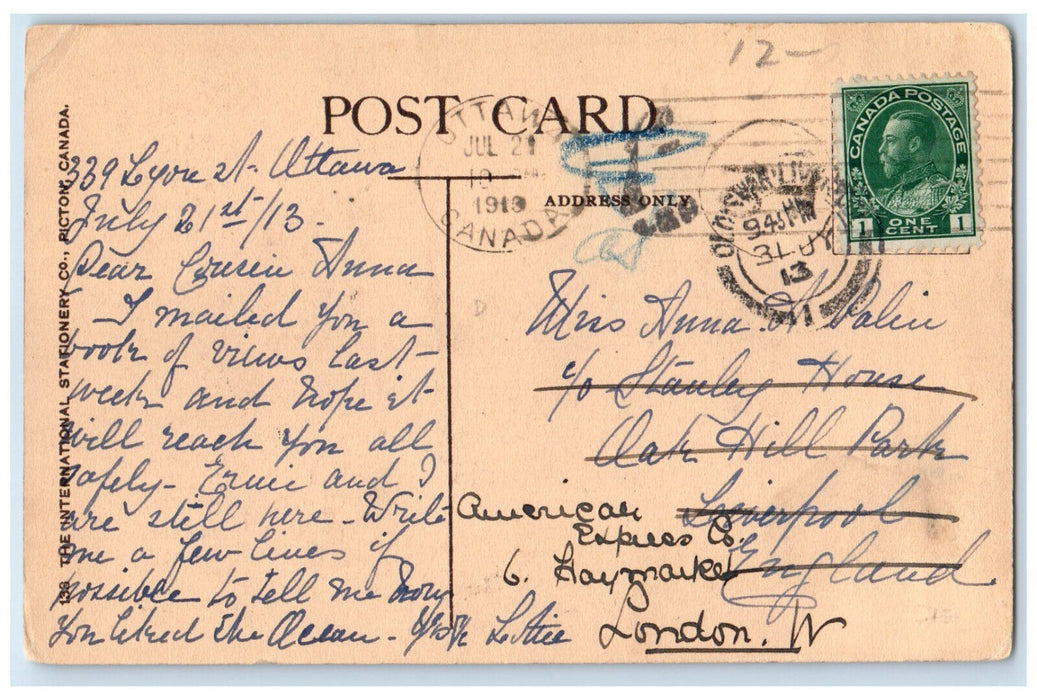 12-
POST CARD.
ADDRESS ONLY
CANADA POSTAGE
1 ONE CENT 1
OTTAWA
JUL 21
1913
CANADA
31 JY
13
339 Lyon St. Ottawa
July 21st/13.
Dear Cousin Anna
I mailed you a
book of views last
week and hope it
will reach you all
safely - Ernie and I
are still here - Write
me a few lines if
possible to tell me how
you liked the Ocean -
Lottie
Miss Anna
c/o Stanley House
Oak Hill Park
Liverpool
England
American
Express Co.
6. Haymarket
London. W
138 THE INTERNATIONAL STATIONERY CO., PICTON, CANADA.